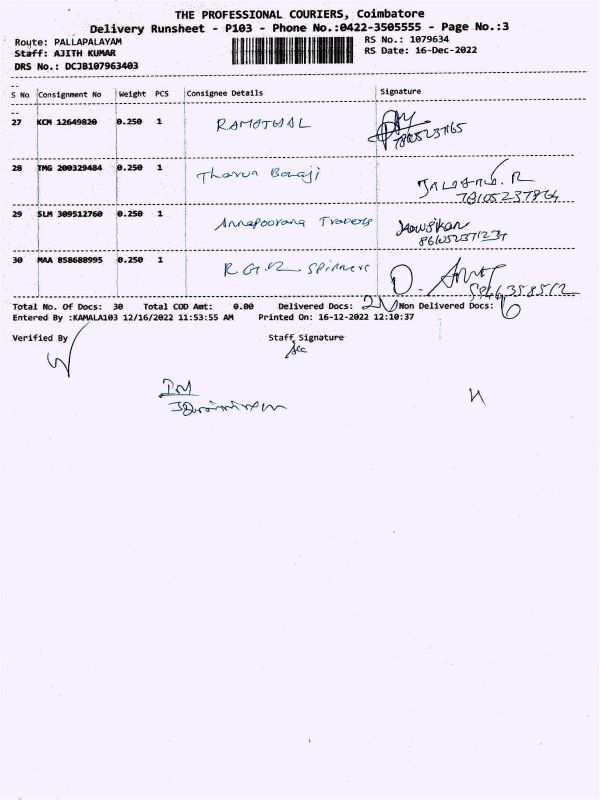 THE PROFESSIONAL COURIERS, Coimbatore
Delivery Runsheet - P103 - Phone No.:0422-3505555 - Page No.:3
Route: PALLAPALAYAM RS No.: 1079634
Staff: AJITH KUMAR RS Date: 16-Dec-2022
DRS No.: DCJB107963403
S No Consignment No Weight PCS Consignee Details Signature
27 KCM 12649820 0.250 1
28 TMG 200329484 0.250 1 Tharun Baraji
29 SLM 309512760 0.250 1 Annapoorana Traders Kowsikan
30 MAA 858688995 0.250 1
Total No. Of Docs: 30 Total COD Amt: 0.00 Delivered Docs: Non Delivered Docs: 6
Entered By :KAMALA103 12/16/2022 11:53:55 AM Printed On: 16-12-2022 12:10:37
Verified By Staff Signature